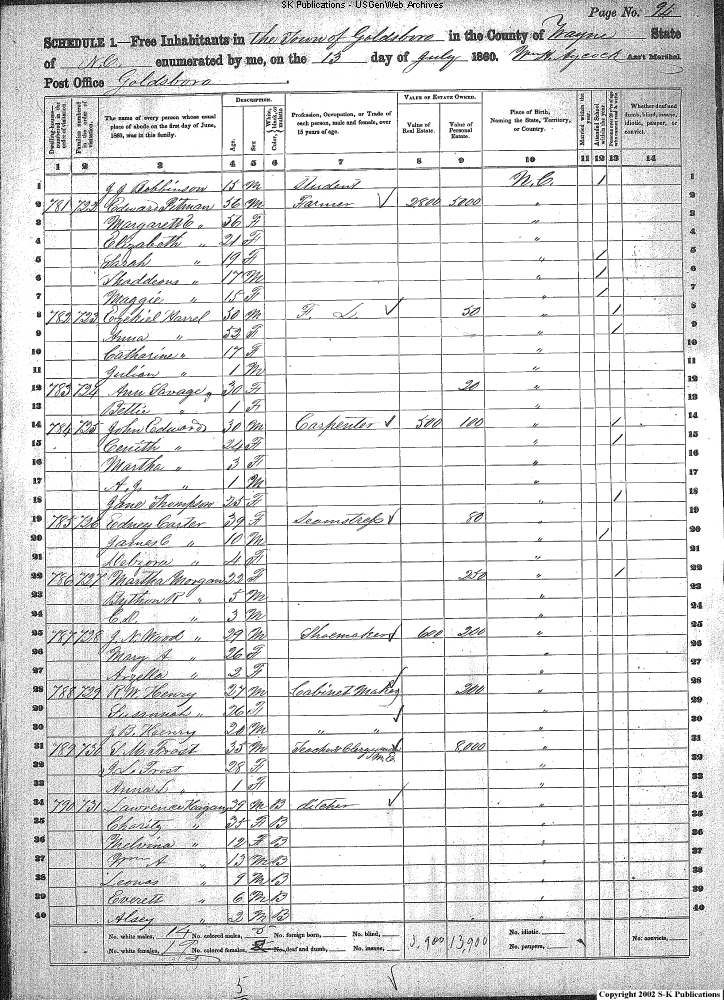 SK Publications - USGenWeb Archives
Page No. 94
SCHEDULE 1.—Free Inhabitants in The Town of Goldsboro in the County of Wayne State
of N.C. enumerated by me, on the 13 day of July 1860. Wm H. Aycock Ass't Marshal.
Post Office Goldsboro
Dwelling-houses—numbered in the order of visitation.
Families numbered in the order of visitation.
The name of every person whose usual place of abode on the first day of June, 1860, was in this family.
DESCRIPTION.
Age.
Sex.
Color, White, black, or mulatto
Profession, Occupation, or Trade of each person, male and female, over 15 years of age.
VALUE OF ESTATE OWNED.
Value of Real Estate.
Value of Personal Estate.
Place of Birth, Naming the State, Territory, or Country.
Married within the year.
Attended School within the year.
Whether deaf and dumb, blind, insane, idiotic, pauper, or convict.
1 2 3 4 5 6 7 8 9 10 11 12 13 14
1 J J Robbinson 15 M Student N.C. / 1
2 781 722 Edward Pitman 56 M Farmer 2800 5000 " 2
3 Margarett C " 56 F " 3
4 Elizabeth " 21 F " 4
5 Sarah " 19 F " / 5
6 Shaddeous " 17 M " / 6
7 Maggie " 15 F " / 7
8 782 723 Ezekiel Harrel 50 M F. L. 50 " / 8
9 Anna " 52 F " / 9
10 Catharine " 17 F " 10
11 Julian " 1 M " 11
12 783 724 Ann Savage 30 F 20 " 12
13 Bettie " 1 F " 13
14 784 725 John Edward 30 M Carpenter 500 100 " / 14
15 Cenith " 24 F " / 15
16 Martha " 3 F " 16
17 A.J. " 1 M " 17
18 Jane Thompson 25 F " / 18
19 785 726 Eodney Carter 39 F Seamstress 80 " 19
20 James C " 10 M " / 20
21 Debiora " 4 F " 21
22 786 727 Martha Morgan 22 F 250 " / 22
23 Bythan R " 5 M " 23
24 C.D. " 3 M " 24
25 787 728 J. N. Wood " 29 M Shoemaker 600 200 " 25
26 Mary A " 26 F " 26
27 Arzella " 2 F " 27
28 788 729 R.W. Henry 27 M Cabinet Maker 200 " 28
29 Susannah " 26 F " 29
30 J B. Henry 20 M " " " 30
31 789 730 S. M. Frost 35 M Teacher & Clergyman M.E. 8,000 " 31
32 J. L. Frost 28 F " 32
33 Anna L " 1 F " 33
34 790 731 Lawrence Hagan 39 M B ditcher " 34
35 Charity " 35 F B " 35
36 Melvina " 12 F B " 36
37 Wm A " 13 M B " 37
38 Leonas " 9 M B " 38
39 Everett " 6 M B " 39
40 Alsey " 2 M B " 40
No. white males, 14 No. colored males, 5 No. foreign born, No. blind, 3,900 13,900 No. idiotic, No. convicts,
No. white females, 19 No. colored females, No. deaf and dumb, No. insane, No. paupers,
5
Copyright 2002 S-K Publications